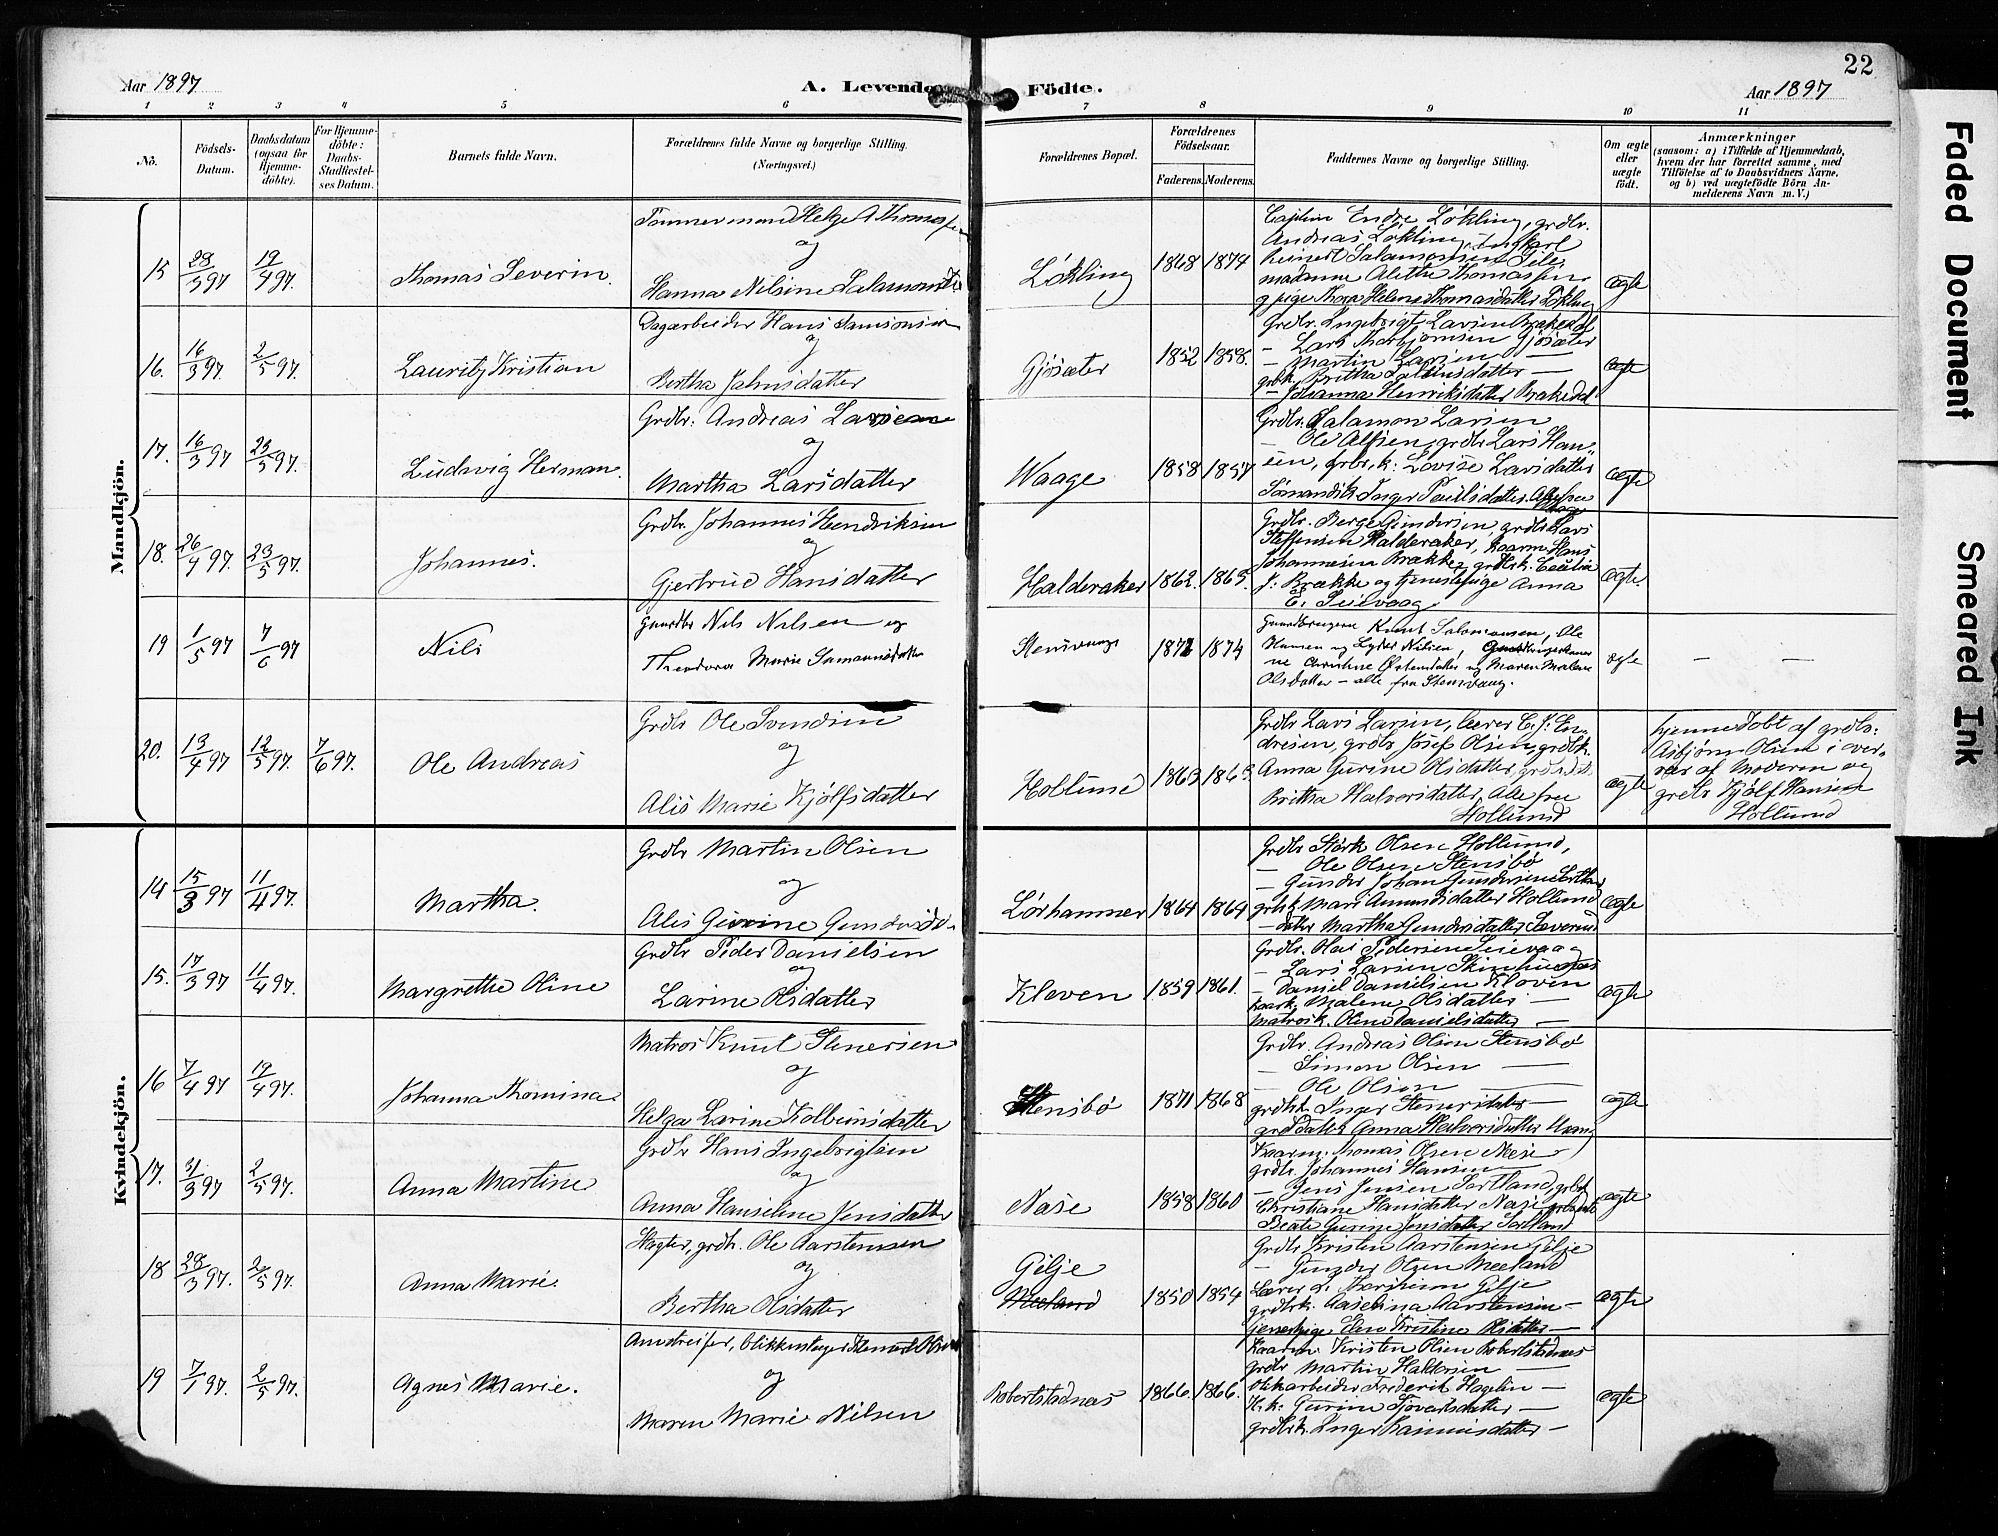 22
Aar 1897
A. Levende Födte.
Aar 1897
1 2 3 4 5 6 7 8 9 10 11
No.
Födsels-
Datum.
Daabsdatum
(ogsaa for
Hjemme-
döbte).
For Hjemme-
döbte:
Daabs-
Stadfæstel-
ses Datum.
Barnets fulde Navn.
Forældrenes fulde Navne og borgerlige Stilling.
(Næringsvei.)
Forældrenes Bopæl.
Forældrenes
Födselsaar.
Faderens.
Moderens.
Faddernes Navne og borgerlige Stilling.
Om ægte
eller
uægte
födt.
Anmærkninger
(saasom: a) i Tilfælde af Hjemmedaab,
hvem der har forrettet samme, med
Tilföielse af to Daabsvidners Navne,
og b) ved uægtefödte Börn An-
melderens Navn m. V.)
Mandkjön.
15 28/3 97 19/4 97. Thomas Severin.
Tømmermand Helge A Thomassen
og
Hanna Nilsine
Løkling 1868 1874
Endre Løkling, grdbr.
Andreas Løkling, ungkarl
Salamonsen
madame Alethe Thomassen
og pige Thora Helene Thomasdatter Løkling
ægte
16. 16/3 97. 2/5 97. Lauritz Kristian
Dagarbeider Hans Samsonsen
og
Bertha Jahnsdatter
Gjøsæter 1852 1858.
Grdbr. Ingebrigt Larsen
— Lars Thorbjørnsen Gjøsæter
— Martin Larsen —
grbk. Britha —
— Johanna Henriksdatter
ægte
17. 16/3 97 23/5 97. Ludvig Herman.
Grdbr. Andreas Larsen
og
Martha Larsdatter
Waage 1858 1857
Grdbr. Salamon Larsen
— Ole Alfsen, grdbr. Lars Han-
sen, grbr.k: Lovise Larsdatter
Inger Paulsdatter. Alle fra
Waage
ægte
18. 26/4 97. 23/5 97. Johannes.
Grdbr. Johannes Hendriksen
og
Gjertrud Hansdatter
Halderaker 1862. 1865.
Grdbr. Berge Gundersen, grdbr. Lars
Steffensen Halderaker, Hans
Johannesen Brække, grdbrk. Cecilie
J: Brække og tjenestepige Anna
E. Seievaag.
ægte.
19 1/5 97 7/6 97 Nils
Gaardbr Nils Nilsen og
Theodora Marie
Stensvaag 1872 1874
Gaardbrugerne Knut Salamonsen, Ole
Hansen og Lyder Nilsen,
ne Christine Østensdatter og Maren Malene
Olsdatter — alle fra Stensvaag.
ægte — —
20. 13/4 97 12/5 97. 7/6 97. Ole Andreas
Grdbr Ole Svendsen
og
Alis Marie Kjølfsdatter
Hollund 1863 1863
Grdbr Lars Larsen, lærer E. J. En-
dresen, grdbr Josef Olsen, grdbrk.
Anna Gurine Olsdatter,
Britha Halvorsdatter, Alle fra
Hollund
ægte
hjemmedøbt af grdbr.
Asbjørn Olsen i over-
vær af Moderen og
grdbr Kjølf Hansen
Hollund
Kvindekjön.
14 15/3 97 11/4 97. Martha.
Grdbr Martin Olsen
og
Alis Gurine Gundersd.
Lørhammer 1864 1864
Grdbr Størk Olsen Hollund,
— Ole Olsen Stensbø
— Gunder Johan Gundersen
grbk. Mari Amundsdatter Hollund
— datter Martha Gundersdatter
ægte
15. 17/3 97 11/4 97. Margrethe Oline
Grdbr Peder Danielsen
og
Larine Olsdatter
Kloven 1859 1861.
Grdbr. Olai Pedersen Seievaag
— Lars Larsen
— Daniel Danielsen Kloven
Malene Olsdatter —
Matrosk. Oline Danielsdatter —
ægte
16 7/4 97 19/4 97. Johanna Thomina
Matros Knut Stenersen
og
Helga Larine Kolbeinsdatter
Stensbø 1871 1868
Grdbr. Andreas Olsen Stensbø
— Simon Olsen —
— Ole Olsen —
grdbrk. Inger Stenersdatter —
grdbdatter Anna Halvorsdatter
ægte
17. 31/3 97 2/5 97. Anna Martine
Grdbr Hans Ingebrigtsen
og
Anna Hanseline Jensdatter
Nase 1858 1860
Kaarm. Thomas Olsen Nese
grdbr. Johannes Hansen —
— Jens Jensen Sortland, grbk.
Christiane Hansdatter Nase
Beate Gurine Jensdatter Sortland
ægte
18 28/3 97. 2/5 97. Anna Marie.
Slagter, grdbr. Ole Aarstensen
og
Bertha Olsdatter
Gilje
Meeland 1850 1854
Grdbr Kristen Aarstensen Gilje
— Gunder Olsen Meeland
Lærer L. Thorsheim Gilje
grdbrk. Aaselina Aarstensen —
tjenestepige Elen Kristine Olsdatter —
ægte
19 7/1 97. 2/5 97. Agnes Marie.
blikkenslager
og
Maren Marie Nilsen
Robertstadnæs 1866. 1866.
Kaarm. Kristen Olsen Robertstadnæs
grdbr Martin Haldorsen —
Frederik Hagelin —
Gurine —
grdbrk. Inger Rasmusdatter —
ægte
Faded Document
Smeared Ink